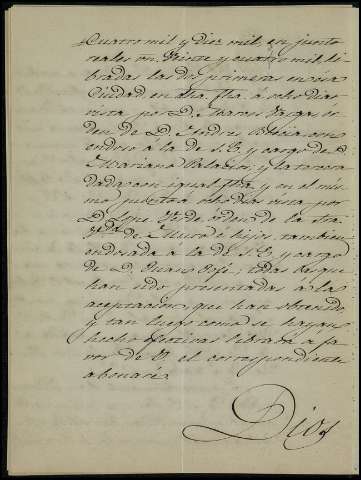 Cuatro mil y Diez mil, en junto
reales vn. Veinte y cuatro mil li-
bradas las dos primeras en esa
Ciudad en dha. fha. á ocho dias
vista por D. Alvaro Vargas ór-
den de D. Andres con
endoso á la de S. E. y cargo de D.
Mariano Palacios, y la terce-
ra dada con igual fha. y en el mis-
mo á ocho dias vista, por
D. Lope de orden de la Sra.
Vda. de Muro é hijos, tambien
endosada á la de S. E. y cargo
de D. Juan José todas las que
han sido presentadas á la
aceptacion, que han obtenido
y tan luego como se hayan
hecho efectivas librará á fa-
vor de V. el correspondiente
abonaré.
Dios